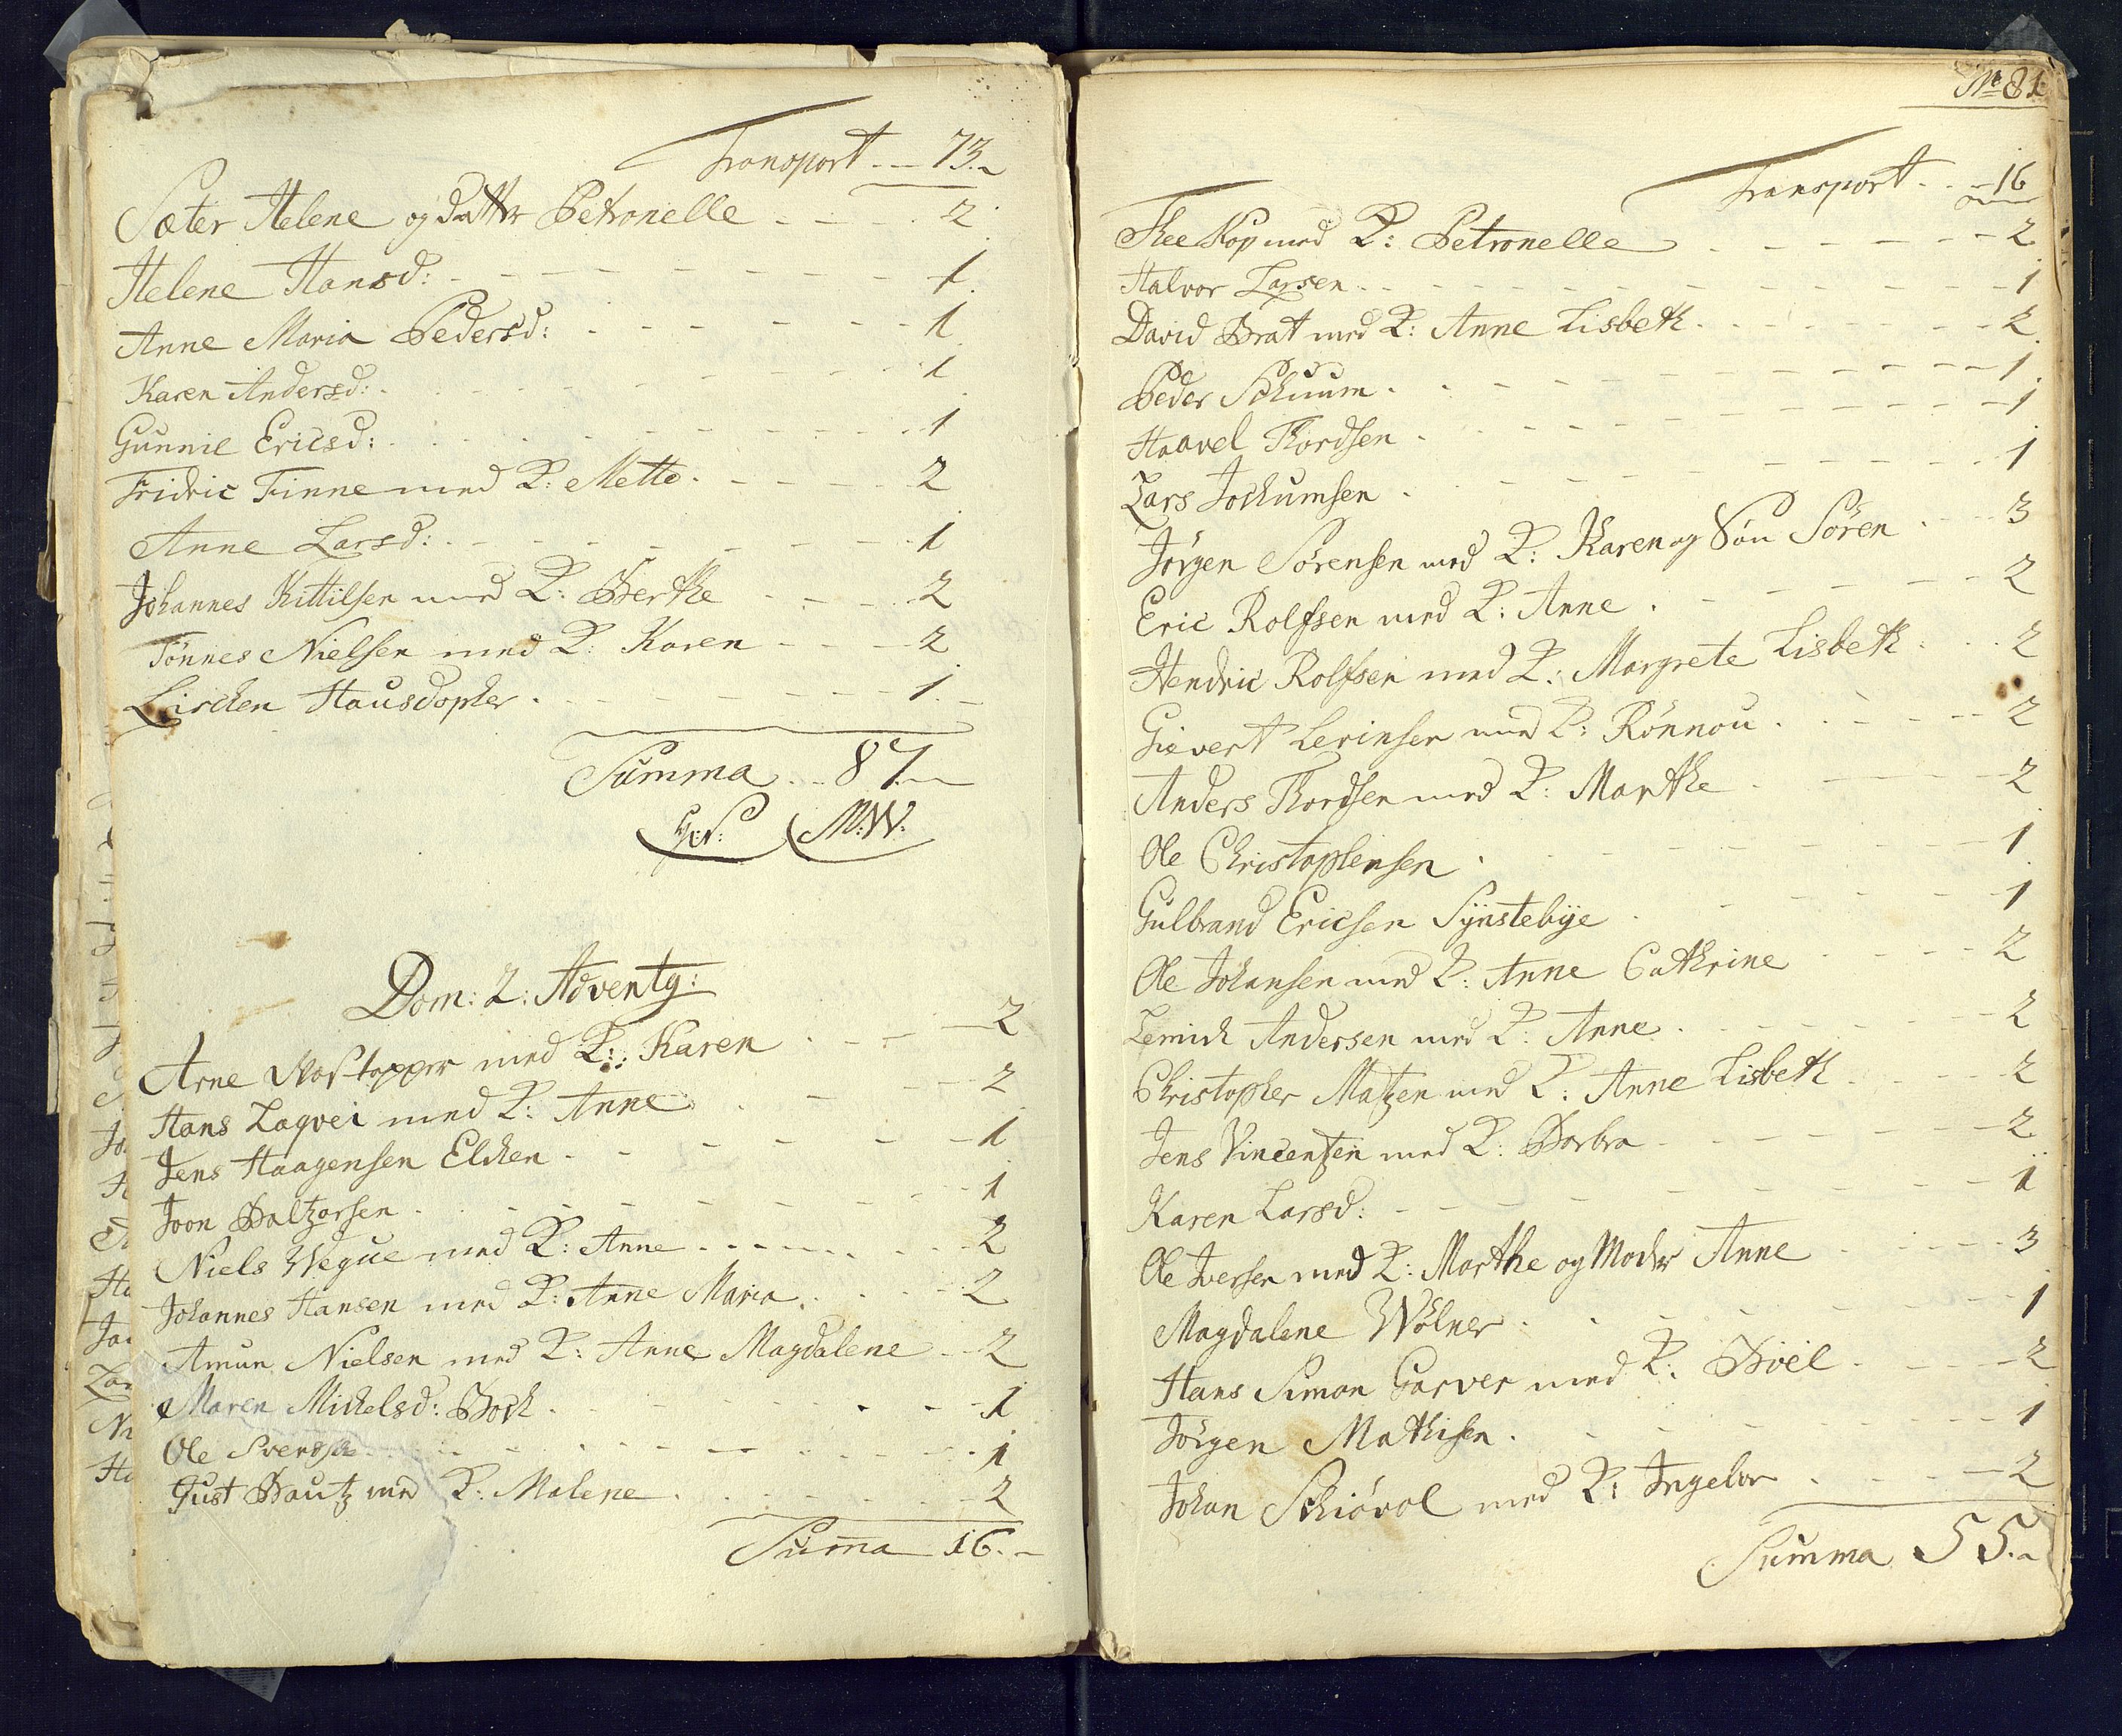 Transport - - 73.
Sæter Helene og datter Petronelle - - - 2
Helene Hansd: - - - 1
Anne Maria Pedersd: - - - 1
Karen Andersd: - - - 1
Gunnil Ericsd: - - - 1
Fridric Finne med K: Mette - - - 2
Anne Larsd: - - - 1
Johannes Kittilsen med K: Berthe - - - 2
Tönnes Nielsen med K: Karen - - - 2
Lischen Hausdopher - - - 1
Summa - - 87.
M:W:
Dom: 2: Adventg:
Arne med K: Karen - - - 2
Hans Laqvei med K: Anne - - - 2
Jens Haagensen Elchen - - - 1
Joon Baltzersen - - - 1
Niels Wegue med K: Anne - - - 2
Johannes Hansen med K: Anne Maria - - - 2
Amun Nielsen med K: Anne Magdalene - - 2
Maren Michelsd: Boch - - - 1
Ole - - - 1
Just Bautz med K: Malene - - - 2
Suma 16.
No 81
Transport - - 16
med K: Petronelle - - - 2
Halvor Larsen - - - 1
David Brat med K: Anne Lisbeth - - - 2
Peder Schuum - - - 1
Haavel Thordsen - - - 1
Lars Jochumsen - - - 1
Jörgen Sörensen med K: Karen og Sön Sören - - 3
Eric Rolfsen med K: Anne - - - 2
Hendric Rolfsen med K: Margrete Lisbeth - - - 2
Gievert Lerinsen med K: Rönnou - - - 2
Anders Thordsen med K: Marthe - - - 2
Ole Christophensen - - - 1
Gulbrand Ericsen Synstebye - - - 1
Ole Johansen med K: Anne Cathrine - - - 2
Lemich Andersen med K: Anne - - - 2
Christopher Matzen med K: Anne Lisbeth - - - 2
Jens Vincentzen med K: Barbra - - - 2
Karen Larsd: - - - 1
Ole Iversen med K: Marthe og Moder Anne - - - 3
Magdalene Wölner - - - 1
Hans Simon Garver med K: Böel - - - 2
Jörgen Mathisen - - - 1
Johan Schiövol med K: Ingebor - - - 2
Summa 55.